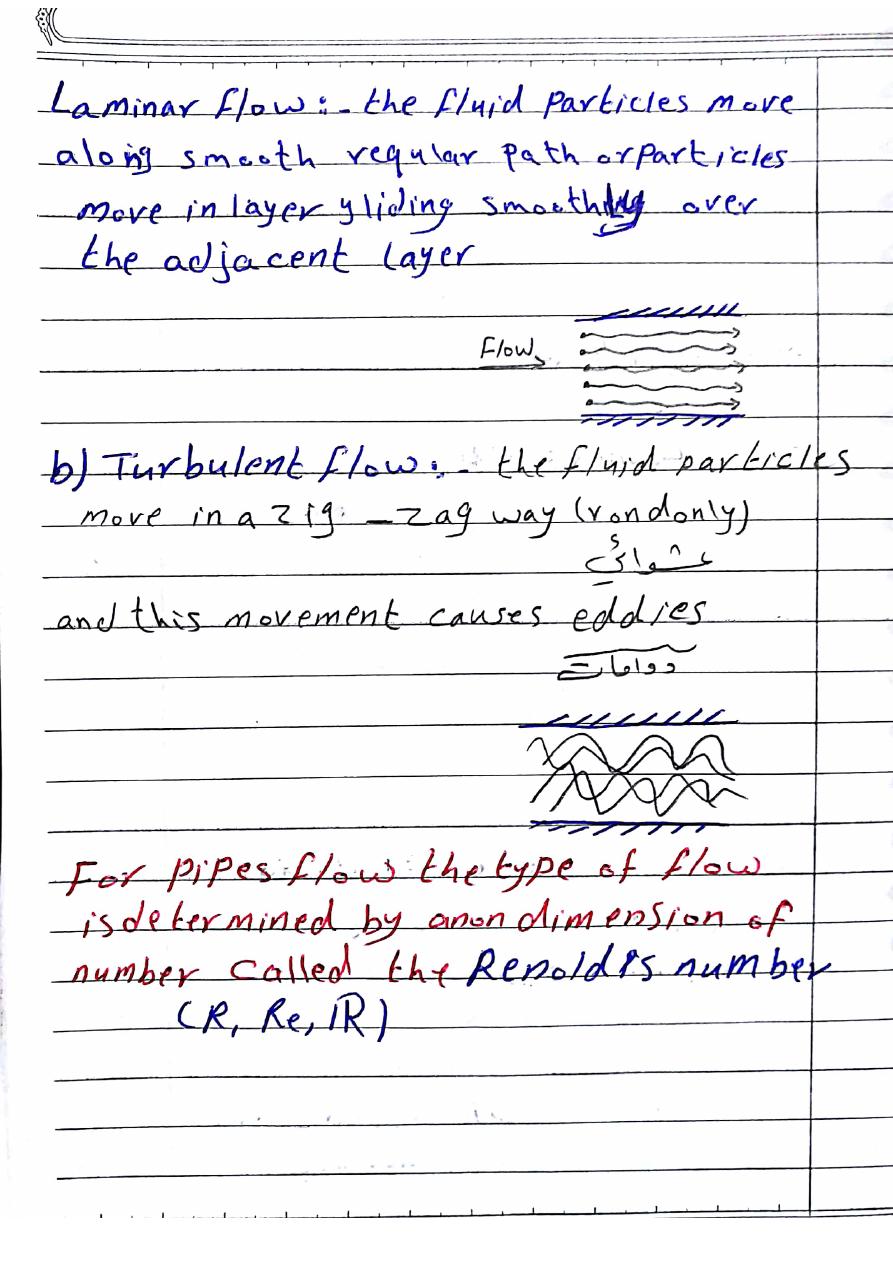 Laminar flow:- the fluid particles move
along smooth regular path or particles
move in layer gliding smoothly over
the adjacent layer
Flow
b) Turbulent flow:- the fluid particles
move in a zig-zag way (rondonly)
عشوائي
and this movement causes eddies
دوامات
For pipes flow the type of flow
is determined by anon dimension of
number called the Renold's number
(R, Re, IR)